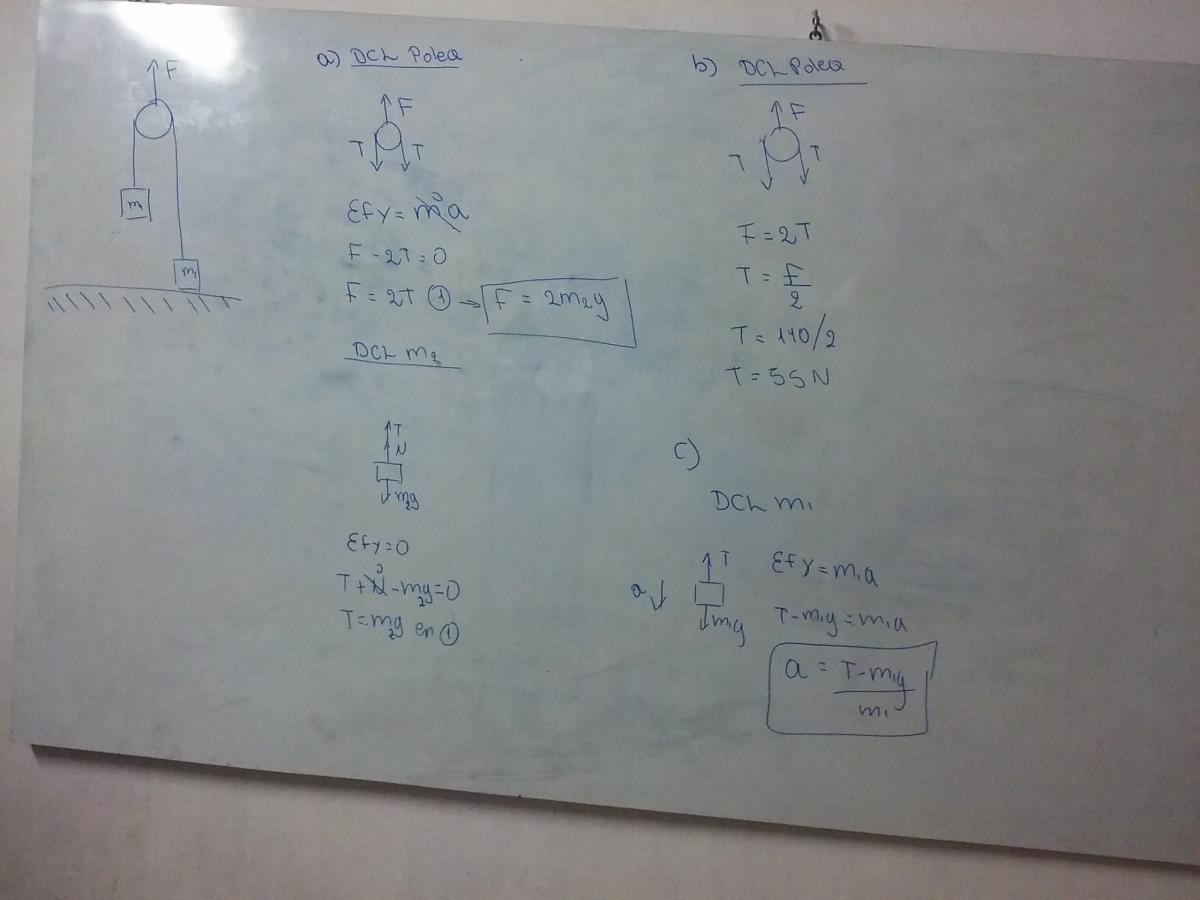 F
m₁
m₁
a) DCL Polea
F
T T
Σfy = m⁰a
F - 2T = 0
F = 2T ① → F = 2m₂g
DCL m₂
T
N
m₂g
Σfy = 0
T + N⁰ - m₂g = 0
T = m₂g en ①
b) DCL Polea
F
T T
F = 2T
T = F/2
T = 110/2
T = 55N
c)
DCL m₁
T
a
m₁g
Σfy = m₁a
T - m₁g = m₁a
a = T - m₁g / m₁